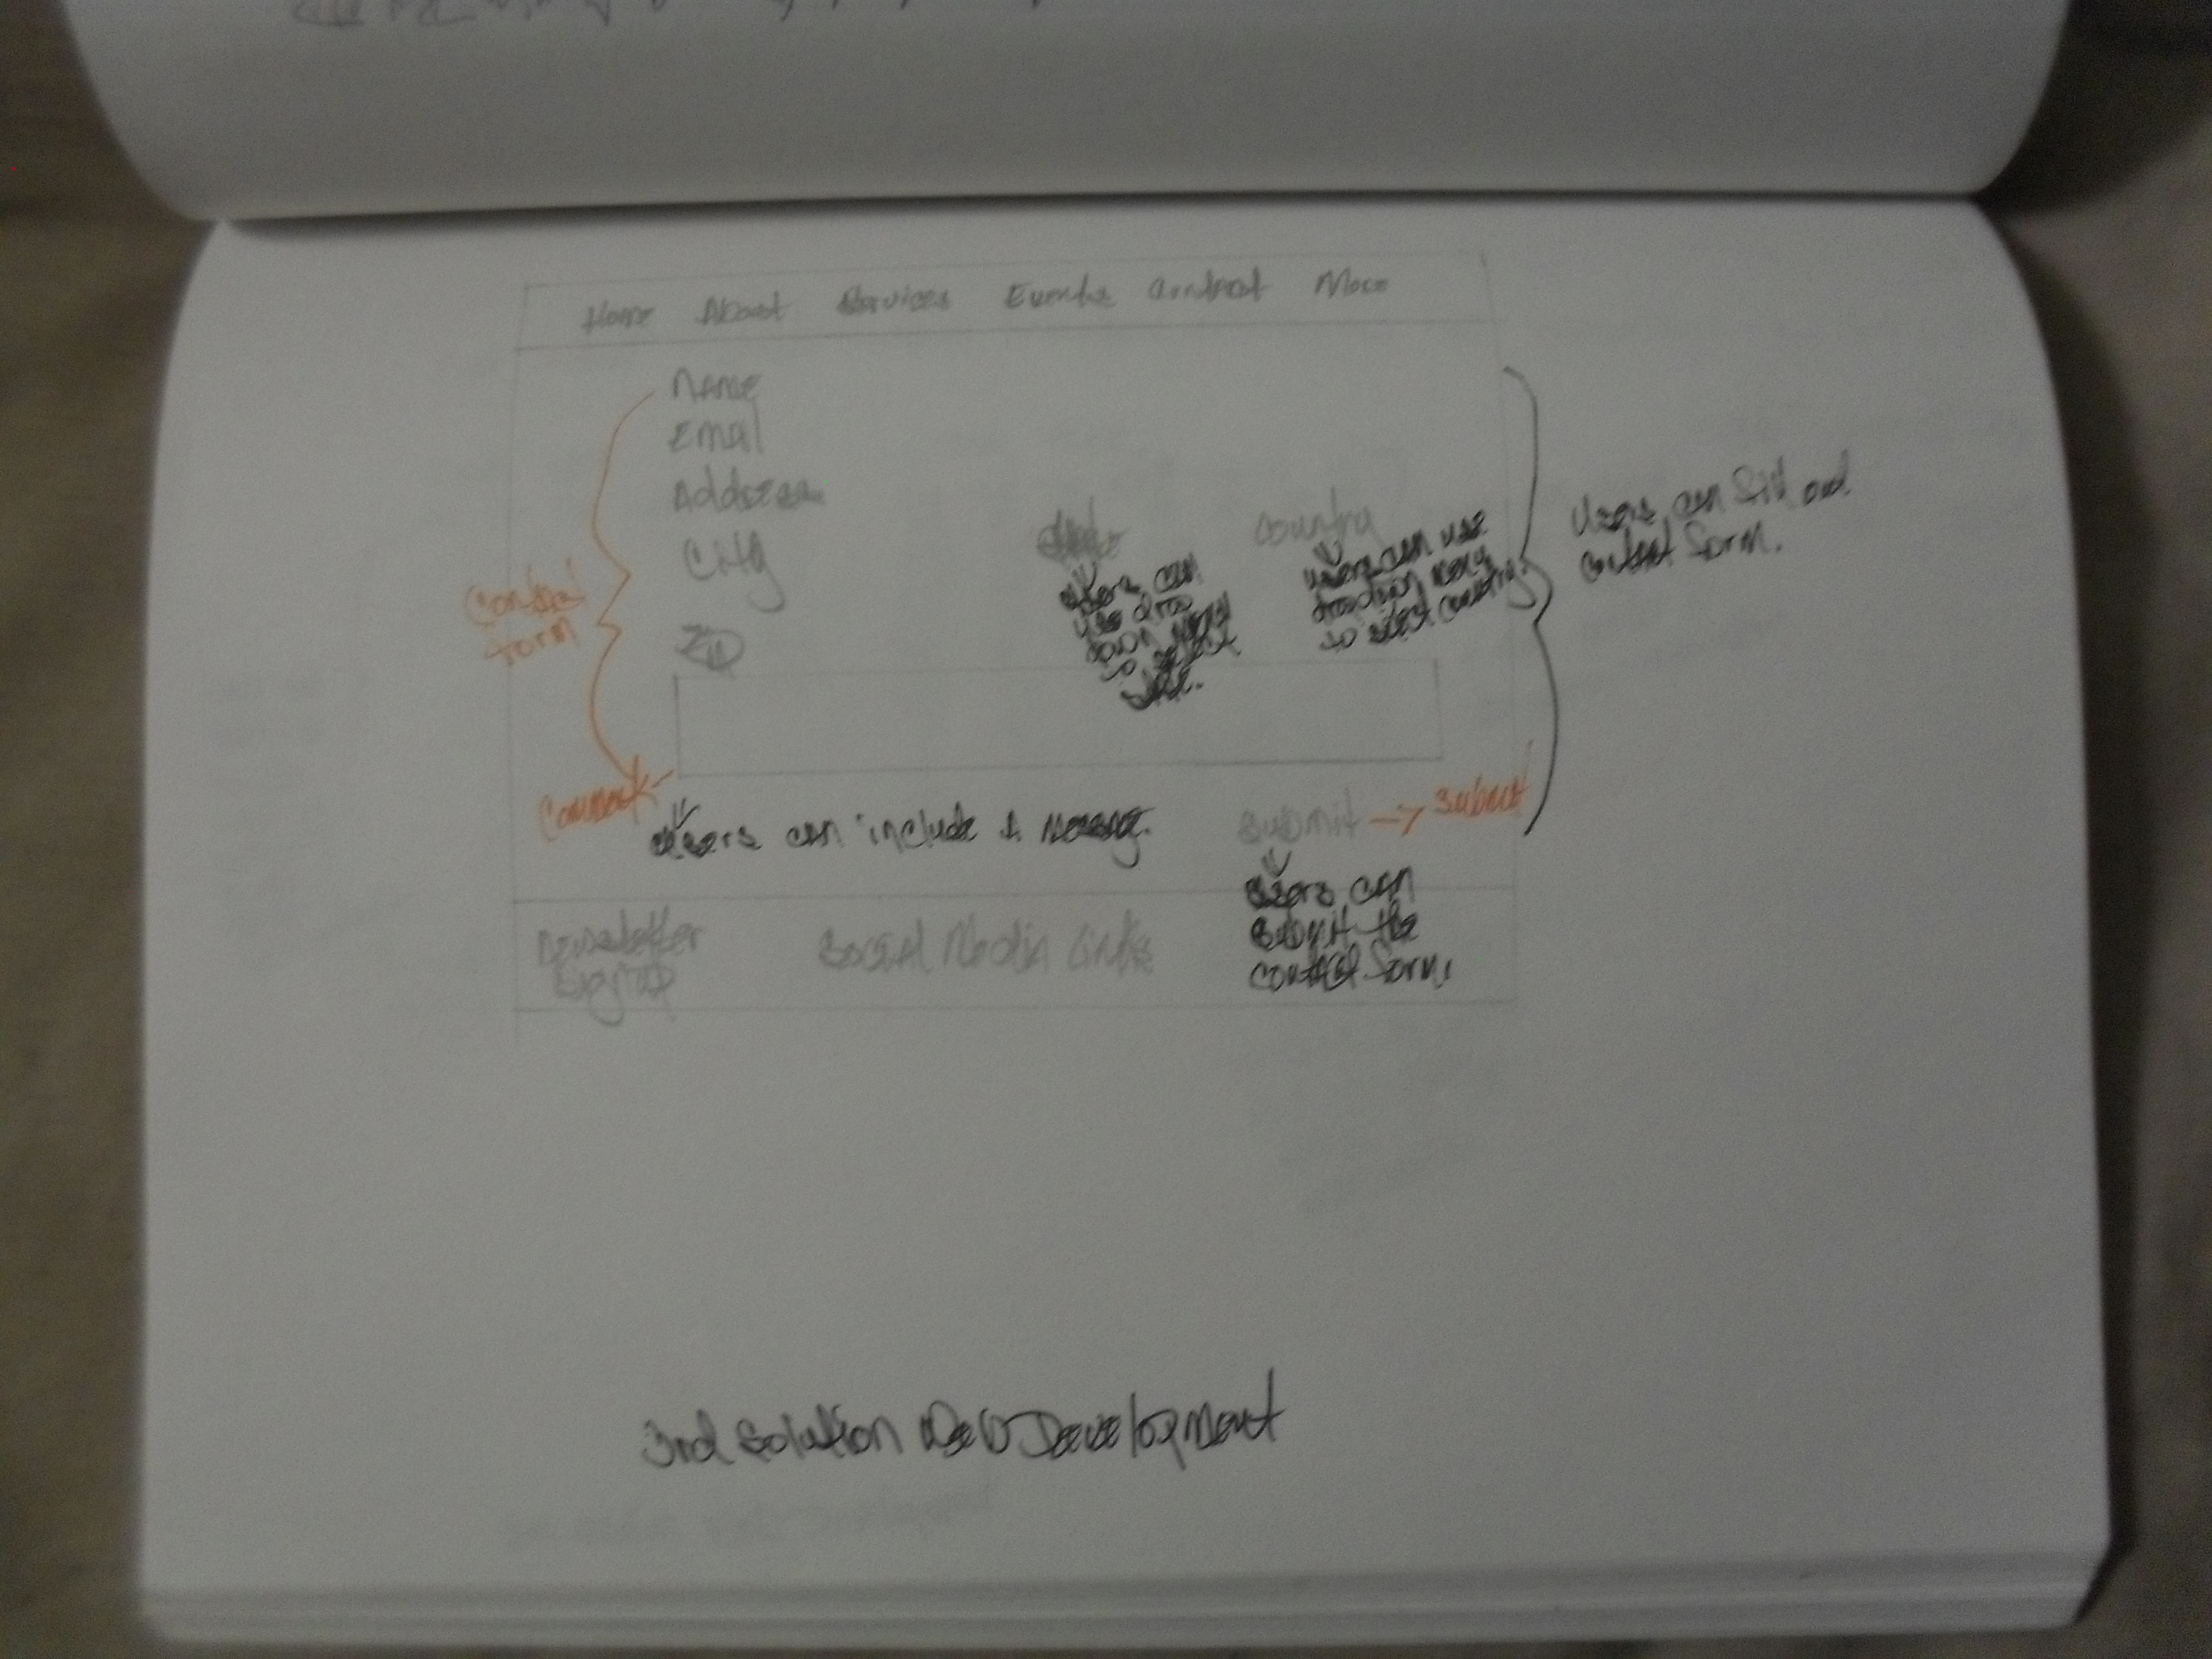 Home About Services Events Contact More
Name
Email
Address
City
State
Country
Zip
users can
use drop
down menu
to select
state.
users can use
dropdown menu
to select country.
Users can fill out
contact form.
Contact
form
Comment
users can include a message.
submit → submit
users can
submit the
contact form.
Newsletter
signup
Social Media Links
3rd Solution Web Development